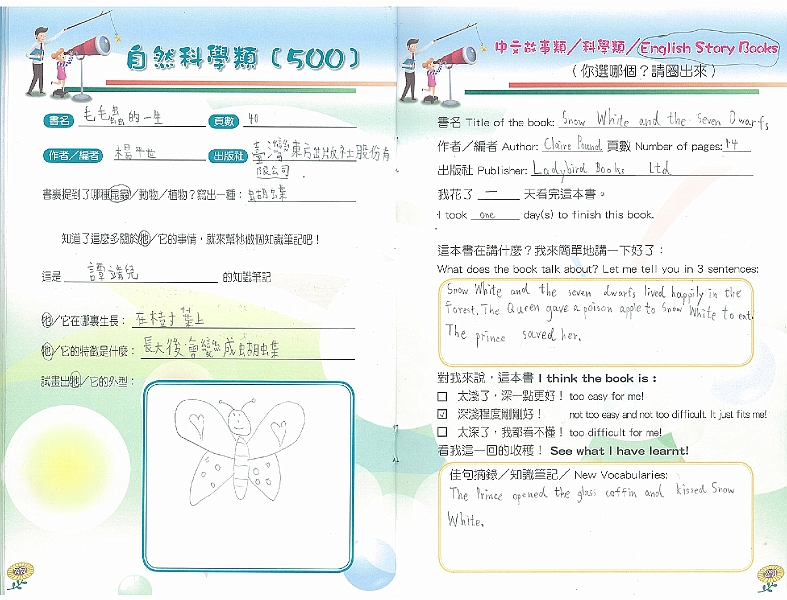 自然科學類（500）
書名 毛毛蟲的一生 頁數 40
作者／編者 楊平世 出版社 臺灣東方出版社股份有
限公司
書裏提到了哪種昆蟲／動物／植物？寫出一種：蝴蝶
知道了這麼多關於牠／它的事情，就來幫牠做個知識筆記吧！
這是 譚靖兒 的知識筆記
牠／它在哪裏生長：在樹葉上
牠／它的特徵是什麼：長大後會變成蝴蝶
試畫出牠／它的外型：
中文故事類／科學類／English Story Books
（你選哪個？請圈出來）
書名 Title of the book: Snow White and the Seven Dwarfs
作者／編者 Author: Claire Pound 頁數 Number of pages: 14
出版社 Publisher: Ladybird Books Ltd
我花了 一 天看完這本書。
I took one day(s) to finish this book.
這本書在講什麼？我來簡單地講一下好了：
What does the book talk about? Let me tell you in 3 sentences:
Snow White and the seven dwarfs lived happily in the
forest. The Queen gave a poison apple to Snow White to eat.
The prince saved her.
對我來說，這本書 I think the book is :
太淺了，深一點更好！ too easy for me!
深淺程度剛剛好！ not too easy and not too difficult. It just fits me!
太深了，我都看不懂！ too difficult for me!
看我這一回的收穫！ See what I have learnt!
佳句摘錄／知識筆記／ New Vocabularies:
The Prince opened the glass coffin and kissed Snow
White.